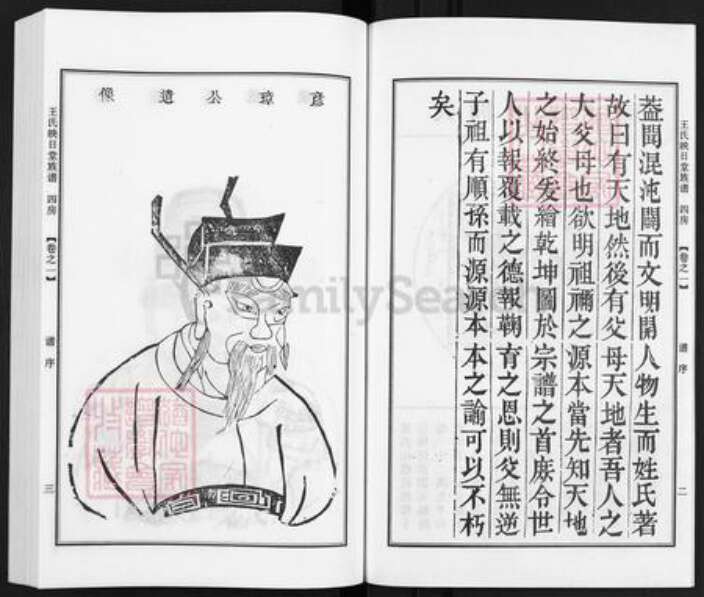 蓋聞混沌闢而文明開人物生而姓氏著
故曰有天地然後有父母天地者吾人之
大父母也欲明祖禰之源本當先知天地
之始終爰繪乾坤圖於宗譜之首庶合世
人以報覆載之德報鞠育之恩則父無逆
子祖有順孫而源源本本之諭可以不朽
矣
王氏映日堂族谱 四房 【卷之一】 谱序 二
彦璋公遺像
王氏映日堂族谱 四房 【卷之一】 谱序 三
FamilySearch